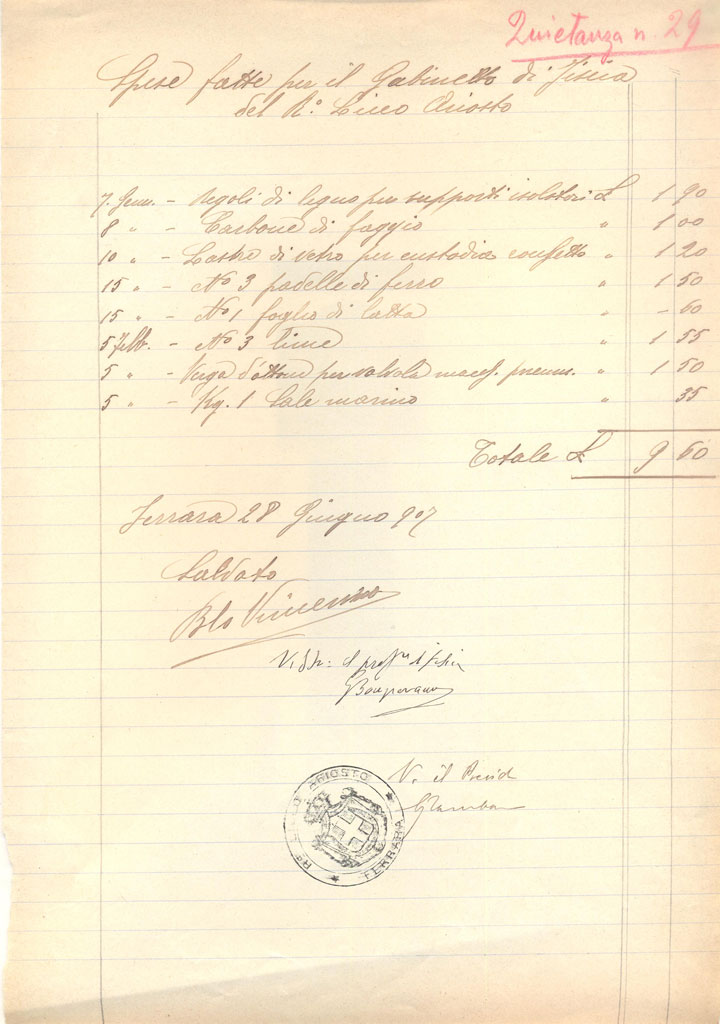 Quietanza n. 29
Spese fatte per il Gabinetto di Fisica
del R.° Liceo Ariosto
7. Genn. - Regoli di legno per supporti isolatori £ 1 90
8 „ - Carbone di faggio „ 1 00
10 „ - Lastre di vetro per custodia „ 1 20
15 „ - N° 3 padelle di ferro „ 1 50
15 „ - N° 1 foglio di latta „ - 60
5 Febb. - N° 3 lime „ 1 55
5 „ - Verga d'ottone per valvola macch. pneum. „ 1 50
5 „ - Kg. 1 Sale marino „ 35
Totale £ 9 60
Ferrara 28 Giugno 907
Saldato
Vincenzo
V. il Presid
R° LICEO ARIOSTO
FERRARA